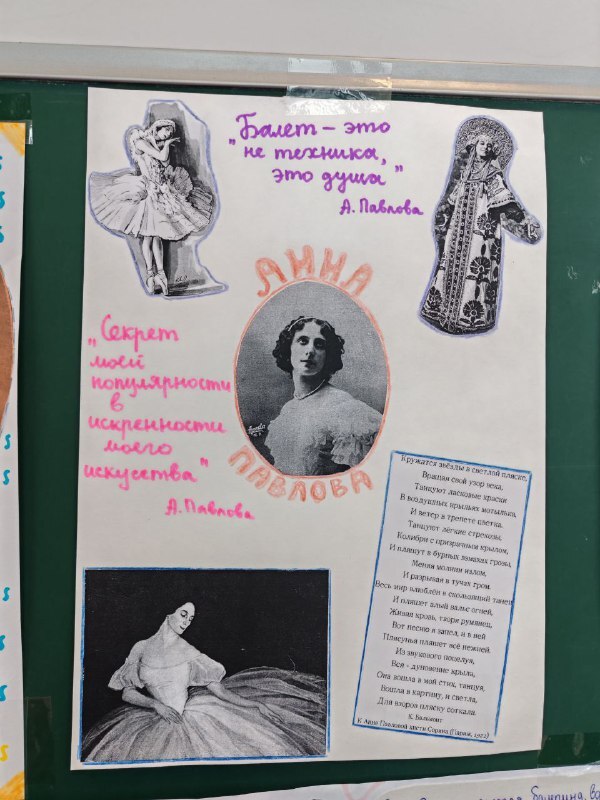 „Балет – это
не техника,
это душа"
А. Павлова
АННА
ПАВЛОВА
„Секрет
моей
популярности
в
искренности
моего
искусства"
А. Павлова
Кружатся звёзды в светлой пляске,
Вращая свой узор века,
Танцуют ласковые краски
В воздушных крыльях мотылька,
И ветер в трепете цветка.
Танцуют лёгкие стрекозы,
Колибри с призрачным крылом,
И пляшут в бурных взмахах грозы,
Меняя молнии излом,
И разрывая в тучах гром.
Весь мир влюблён в скользящий танец
И пляшет алый вальс огней,
Живая кровь, творя румянец,
Вот песню я запел, и в ней
Плясунья пляшет всё нежней.
Из звукового поцелуя,
Вся - дуновение крыла,
Она вошла в мой стих, танцуя,
Вошла в картину, и светла,
Для взоров пляску соткала.
К. Бальмонт
К Анне Павловой кисти Сорина (Париж, 1922)